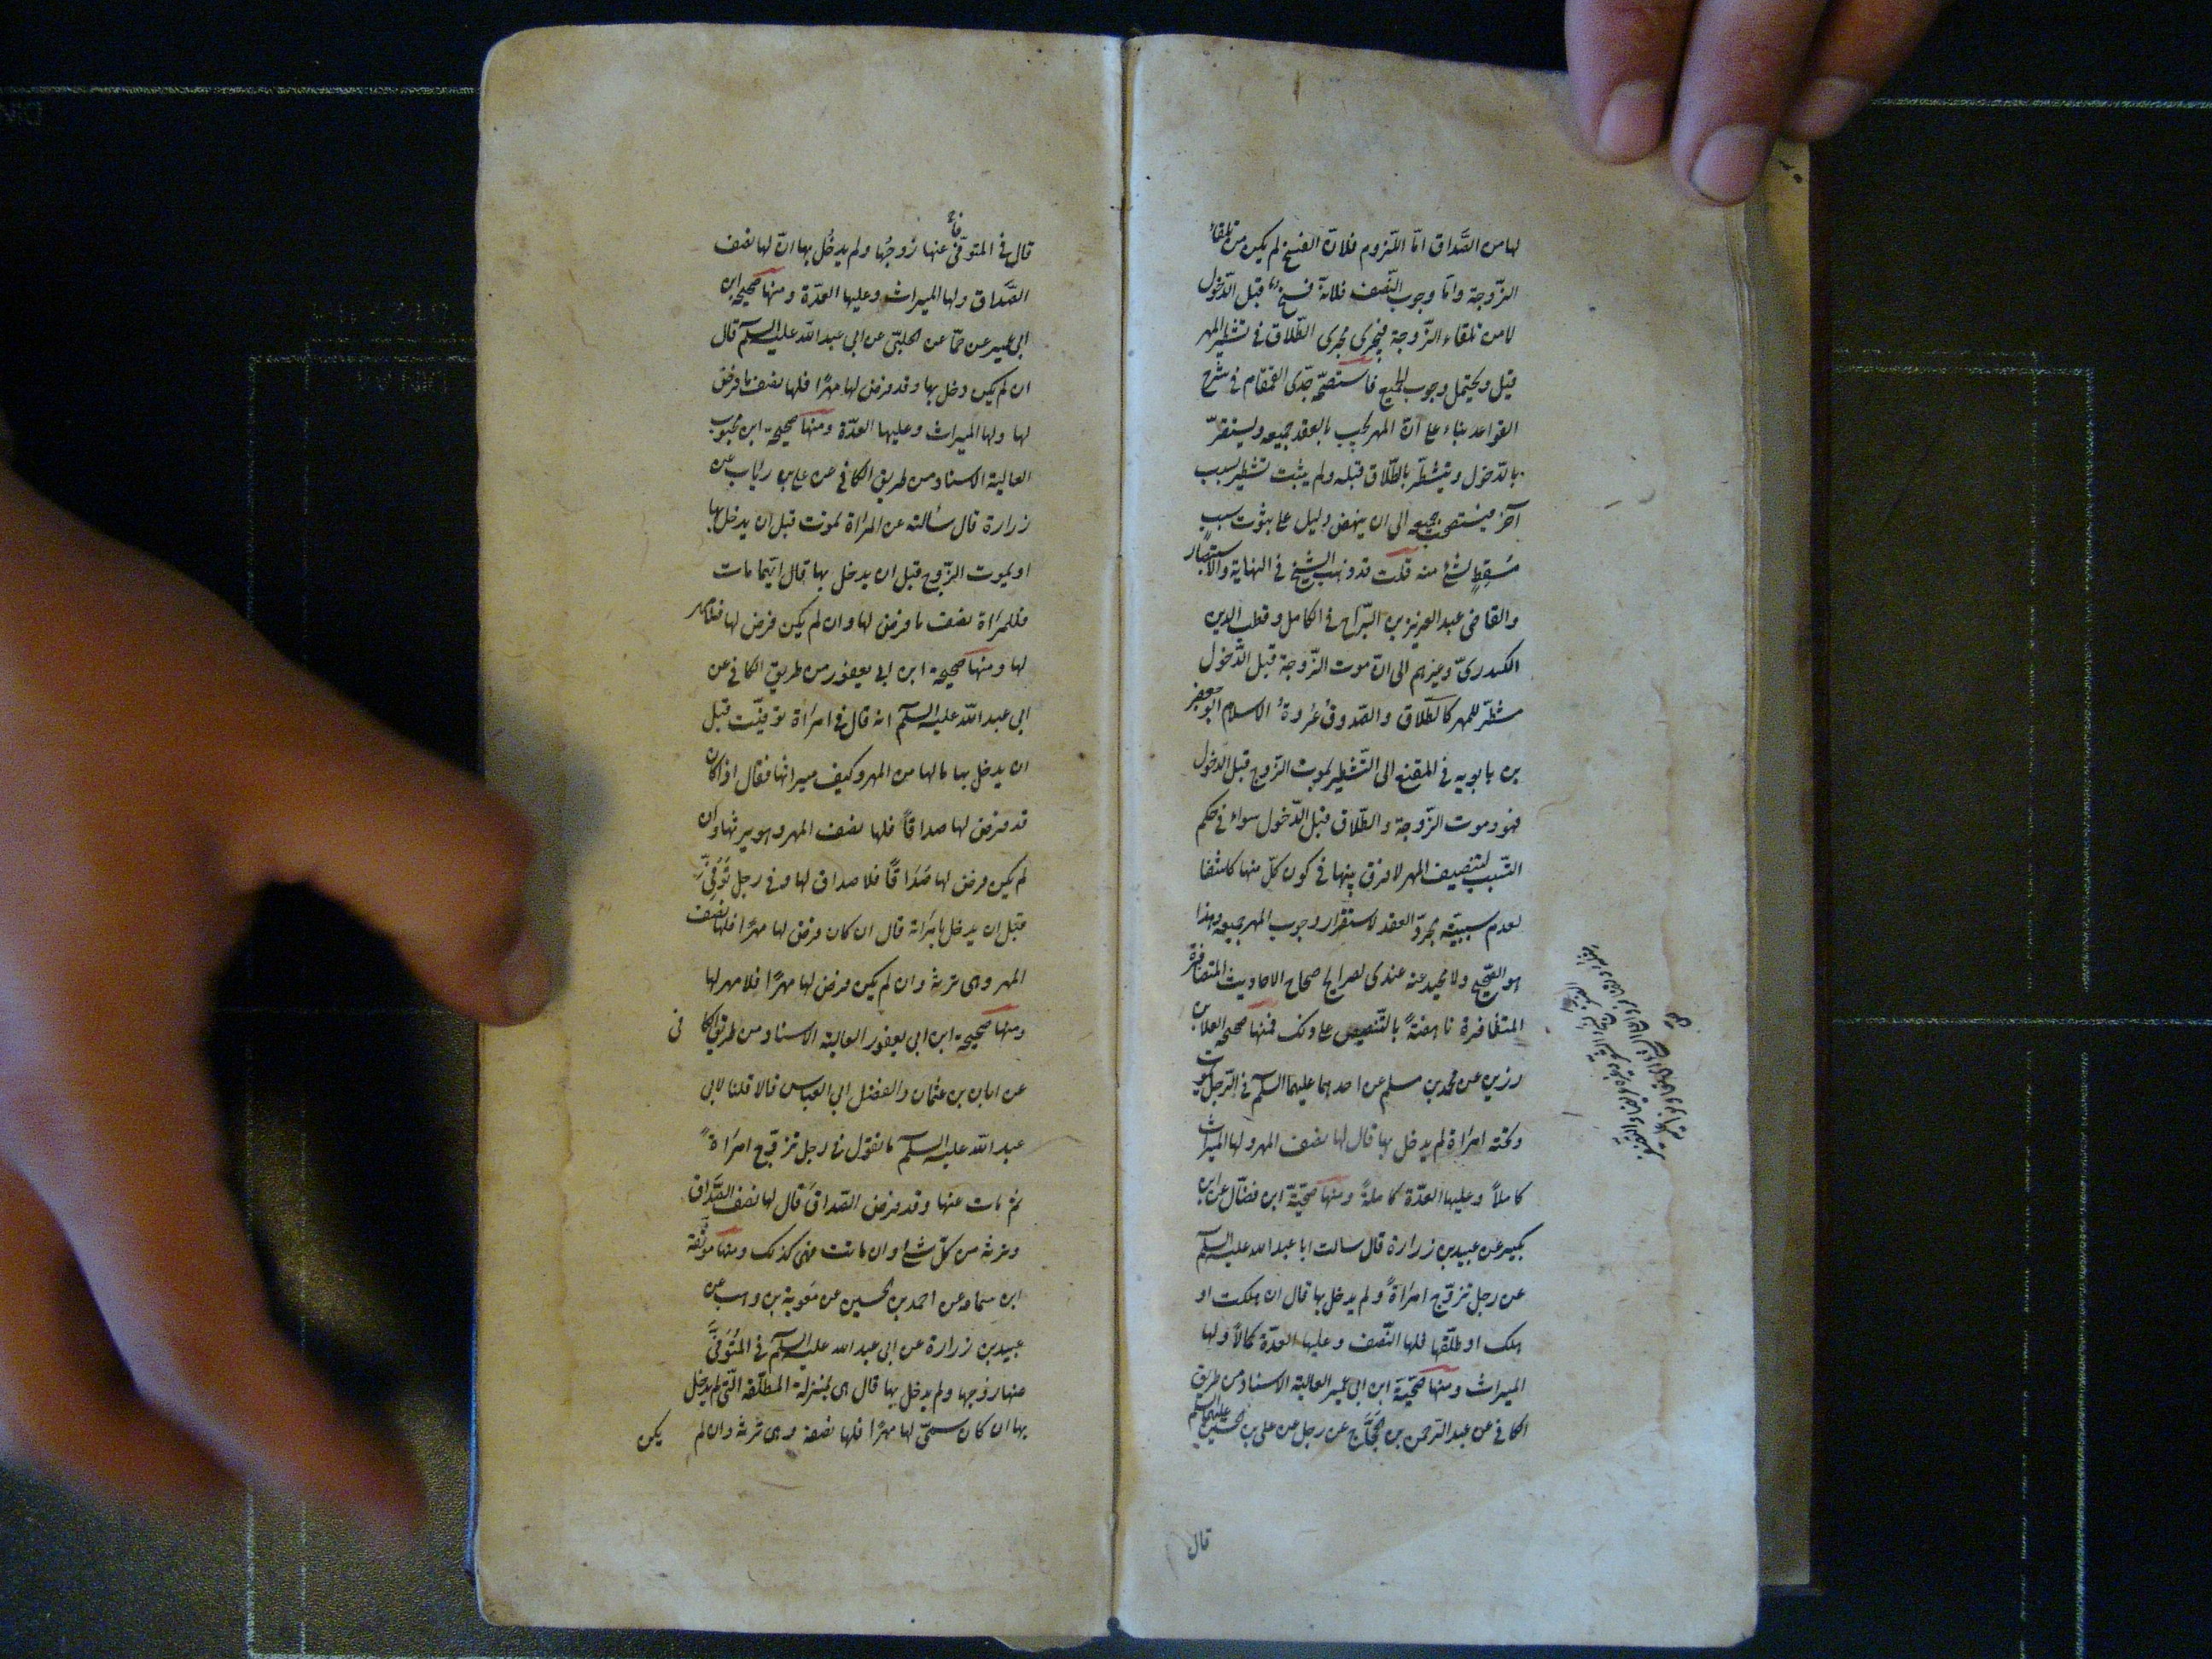 لها من الصَّداق امّا اللّزوم فلانّ الفسخ لم يكن من تلقاء
الزّوجة وامّا وجوب النّصف فلانّه فسخ قبل الدّخول
لا من تلقاء الزّوجة فيجرى مجرى الطّلاق فى تشطير المهر
قيل ويحتمل وجوب الجميع فاستصحّه جدّى القمقام فى شرح
القواعد بناء على انّ المهر يجب بالعقد جميعه ويستقرّ
بالدّخول ويتشطّر بالطّلاق قبله ولم يثبت تشطير بسبب
آخر فيستصحب جميعه الى ان ينهض دليل على ثبوت سبب
مُسقِطٍ لشئ منه قلت قد ذهب الشيخ فى النهاية والاستبصار
والقاضى عبد العزيز بن البرّاج فى الكامل وقطب الدين
الكيدرىّ وغيرهم الى انّ موت الزّوجة قبل الدّخول
مشطّر للمهر كالطّلاق والصّدوقُ عُروةُ الاسلام ابو جعفر
بن بابويه فى المقنع الى التّشطير بموت الزّوج قبل الدخول
فهو وموت الزّوجة والطّلاق قبل الدّخول سواء فى حكم
السّبب لتنصيف المهر لا فرق بينها فى كون كلّ منها كاشفا
لعدم سببيّة مجرّد العقد لاستقرار وجوب المهر جميعه وهذا
هو الصّحيح ولا محيد عنه عندى لصرايح صحاح الاحاديث المتضافرة
المتظافرة ناهضةً بالتّنصيص على ذلك فمنها صحيحة العلا بن
رزين عن محمد بن مسلم عن احدهما عليهما السلم فى الرّجل يموت
وتحته امرأة لم يدخل بها قال لها نصف المهر ولها الميراث
كاملاً وعليها العدّة كاملةً ومنها صحّيّة ابن فضّال عن ابن
بكير عن عبيد بن زرارة قال سالت ابا عبد الله عليه السلم
عن رجل تزوّج امرأةً ولم يدخل بها قال ان هلكت او
هلك او طلّقها فلها النّصف وعليها العدّة كملاً ولها
الميراث ومنها صحّيّة ابن ابى عمير العالية الاسناد من طريق
الكافى عن عبد الرّحمن بن الحجّاج عن رجل عن على بن الحسين عليهما السلم
قال
قال فى المتوفّى عنها زوجُها ولم يدخُل بها انّ لها نصف
الصَّداق ولها الميراث وعليها العدّة ومنها صحيحة ابن
ابى عمير عن حمّاد عن الحلبىّ عن ابى عبد الله عليه السلم قال
ان لم يكن دخل بها وقد فرض لها مهرًا فلها نصف ما فرض
لها ولها الميراث وعليها العدّة ومنها صحيحة ابن محبوب
العالية الاسناد من طريق الكافى عن على بن رئاب عن
زرارة قال سألته عن المرأة تموت قبل ان يدخل بها
او يموت الزّوج قبل ان يدخل بها قال ايّهما مات
فللمرأة نصف ما فرض لها وان لم يكن فرض لها فلا مهر
لها ومنها صحيحة ابن ابى يعفور من طريق الكافى عن
ابى عبد الله عليه السلم انه قال فى امرأة توفيّت قبل
ان يدخل بها ما لها من المهر وكيف ميراثها فقال اذا كان
قد فرض لها صداقاً فلها نصف المهر وهو يرثها وان
لم يكن فرض لها صَداقاً فلا صداق لها وفى رجل تُوُفِّىَ
قبل ان يدخل بامرأته قال ان كان فرض لها مهرًا فلها نصف
المهر وهى ترثه وان لم يكن فرض لها مهرًا فلا مهر لها
ومنها صحيحة ابن ابى يعفور العالية الاسناد من طريق الكافى
عن ابان بن عثمان والفضل ابى العباس قالا قلنا لابى
عبد الله عليه السلم ما تقول فى رجل تزوّج امرأةً
ثم مات عنها وقد فرض الصّداق قال لها نصف الصَّداق
وترثه من كلّ شئ وان ماتت فهى كذلك ومنها موثّقة
ابن سماعة عن احمد بن الحسين عن معوية بن وهب عن
عبيد بن زرارة عن ابى عبد الله عليه السلم فى المُتَوفّى
عنها زوجها ولم يدخل بها قال هى بمنزلة المطلّقة الّتى لم يدخل
بها ان كان سمّى لها مهرًا فلها نصفه وهى ترثه وان لم يكن